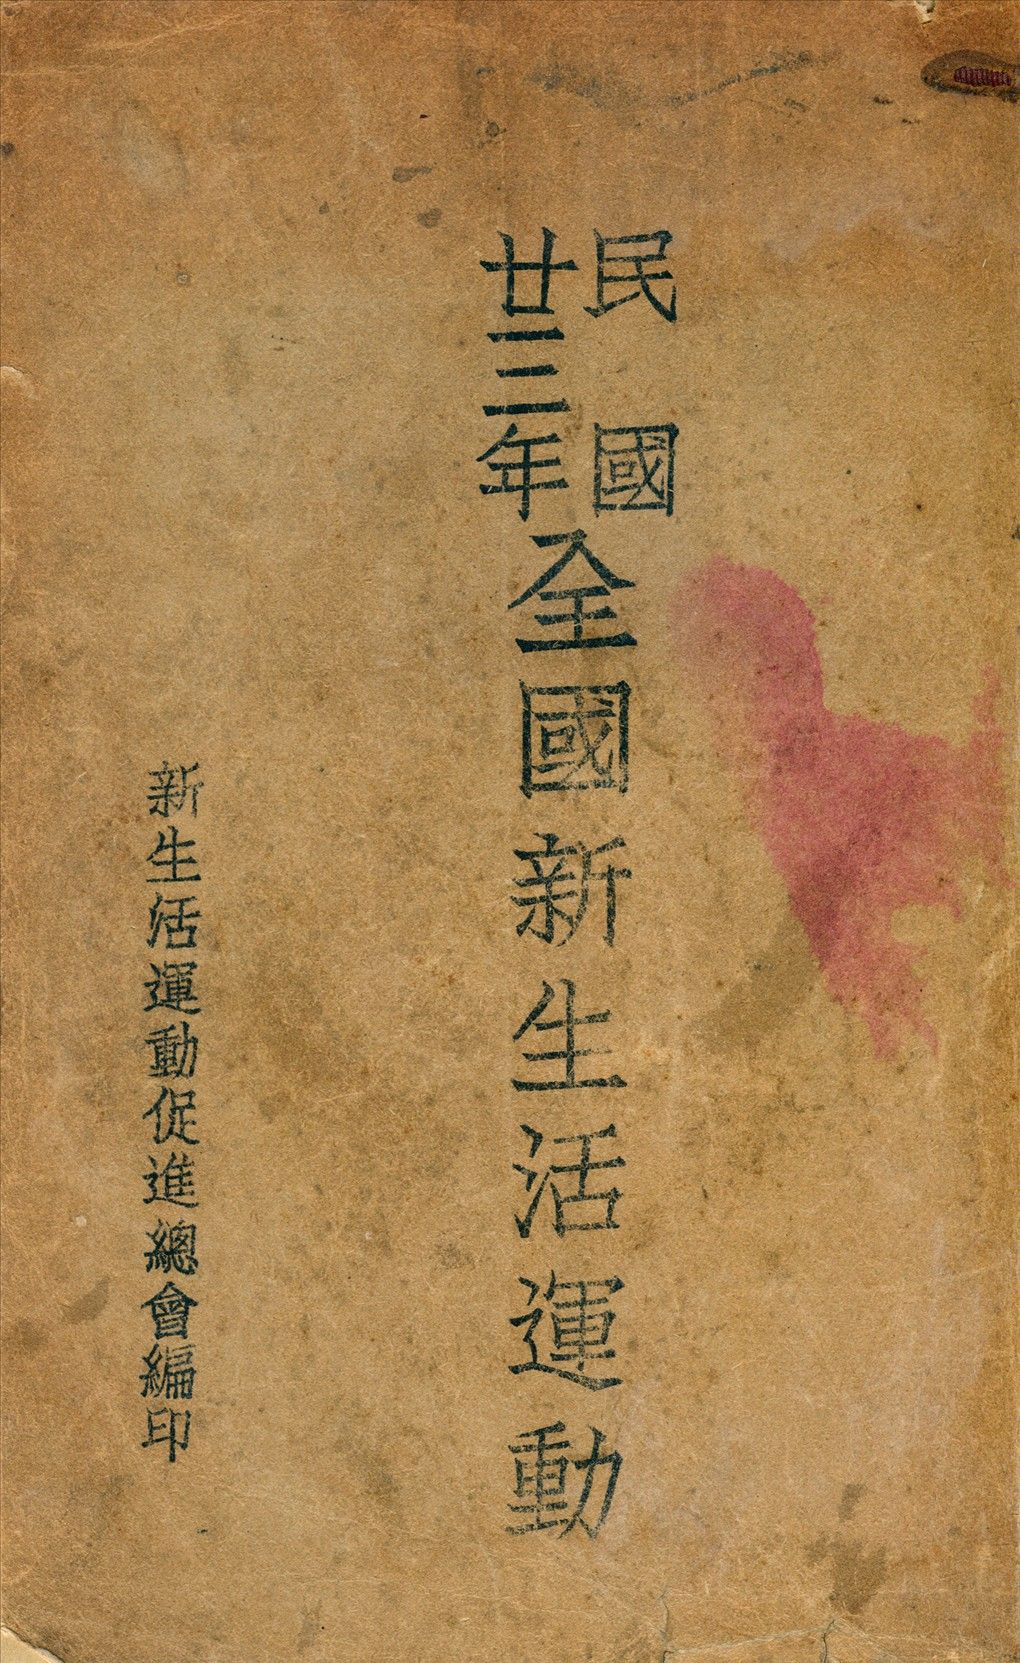 民國
廿三年
全國新生活運動
新生活運動促進總會編印